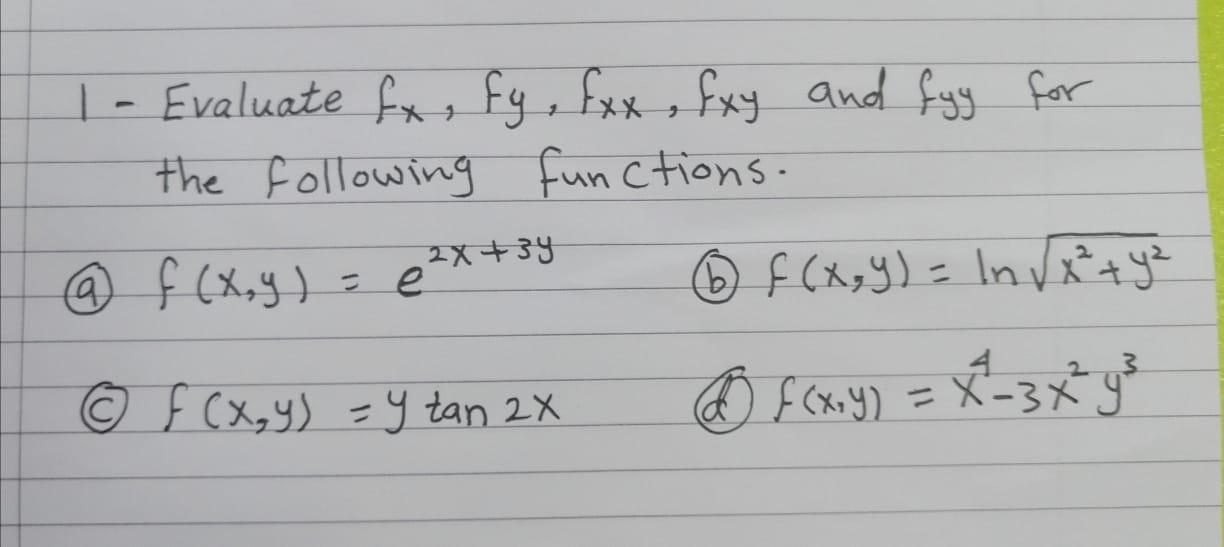 1 - Evaluate fx, fy, fxx, fxy and fyy for
the following functions.
ⓐ f(x,y) = e^{2x+3y} ⓑ f(x,y) = ln √(x²+y²)
ⓒ f(x,y) = y tan 2x ⓓ f(x,y) = x⁴-3x²y³